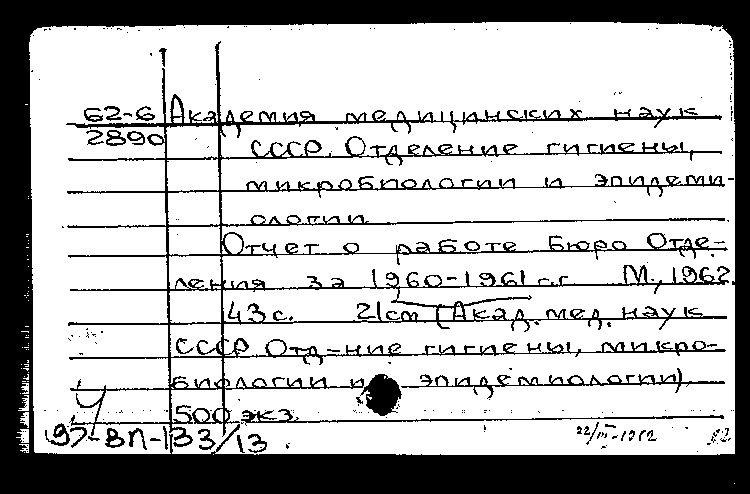 62-6 Академия медицинских наук
2890 СССР. Отделение гигиены,
микробиологии и эпидеми-
ологии
Отчет о работе Бюро Отде-
ления за 1960-1961 г.г М., 1962.
43 с. 21 cm (Акад. мед. наук
СССР Отд-ние гигиены, микро-
биологии и эпидемиологии)
500 экз.
97-ВП-133/13.
22/III-1962 82